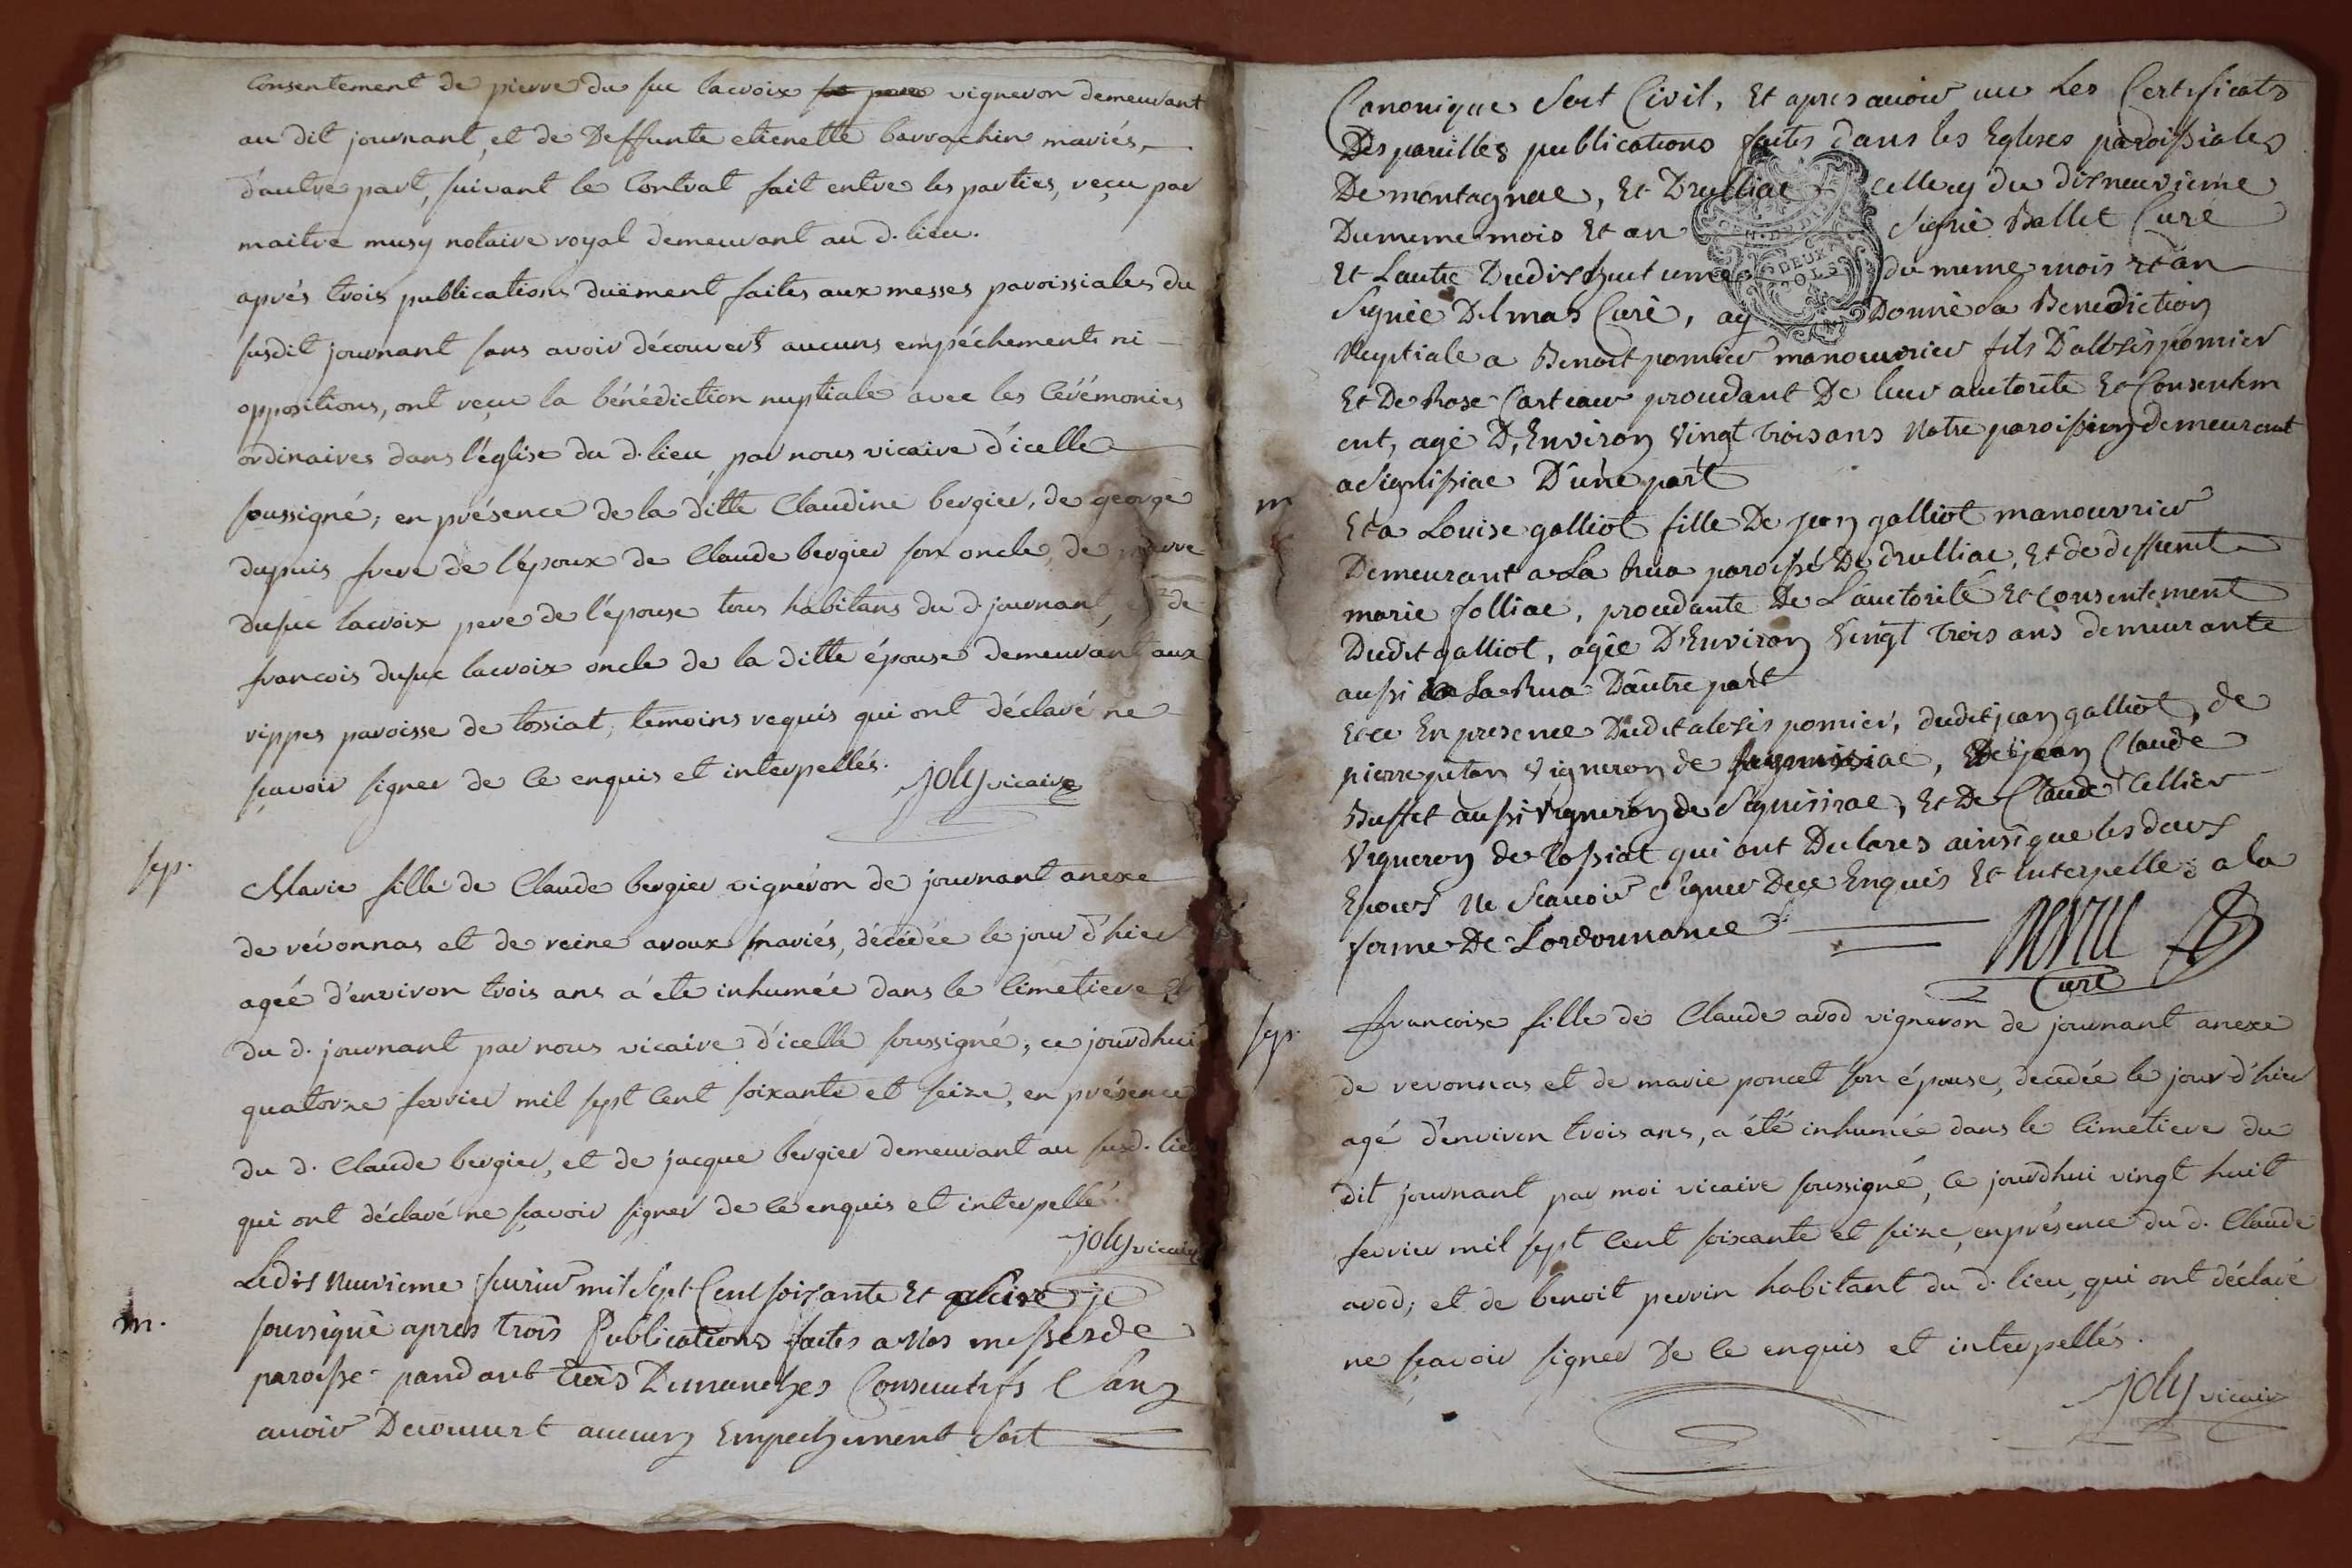 Consentement de pierre du suc lacroix vigneron demeurant
au dit journant, et de Deffunte etienette barrachin mariés,
d'autre part, suivant le Contrat fait entre les parties, reçu par
maitre musy notaire royal demeurant au d. lieu.
aprés trois publications duëment faites aux messes paroissiales du
susdit journant sans avoir découvert aucuns empéchements ni
oppositions, ont reçu la bénédiction nuptiale avec les Cérémonies
ordinaires dans l'église du d. lieu par nous vicaire d'icelle
soussigné; en présence de la ditte Claudine bergier, de george
dupuis frere de l'époux de Claude bergier son oncle, de pierre
dusuc lacroix pere de l'épouse tous habitans du d. journant, et de
francois dusuc lacroix oncle de la ditte épouse demeurant aux
rippes paroisse de tossiat, temoins requis qui ont déclaré ne
sçavoir signer de ce enquis et interpellés. joly vicaire
sep.
Marie fille de Claude bergier vignéron de journant anexe
de révonnas et de reine avoux mariés, décédée le jour d'hier
ageé d'environ trois ans a été inhumée dans le Cimetiere
du d. journant par nous vicaire d'icelle soussigné, ce jourdhui
quatorze fevrier mil sept Cent soixante et seize, en présence
du d. Claude bergier, et de jacque bergier demeurant au susd. lieu
qui ont déclaré ne sçavoir signer de ce enquis et interpellé.
joly vicaire
m.
Le dix neuvieme fevrier mil Sept Cent soixante Et seize je
soussigné apres trois Publications faites a Nos messes de
paroisse pandant trois Dimanches Consecutifs Sans
avoir Decouvert aucung Empechement Soit
Canonique Soit Civil, Et apres avoir vu Les Certificats
Des pareilles publications faites dans les Eglises paroissiales
De montagnae, Et Drulliae celluy du dixneuvieme
Du meme mois Et an Signé Ballet Curé
Et Lautre Du dixhuit du meme mois et an
Signée Delmas Curé, ay Donné La Benediction
Nuptiale a Benoit pomier manouvrier fils D'alexis pomier
Et De Rose Carteaur procedant De leur autorité Et Consentem
ent, agé D'Environ Vingt trois ans Notre paroissien demeurant
a Signissiae D'une part
m
Et a Louise galliot fille De jean galliot manouvrier
Demeurant a La Rua paroisse De drulliae, Et de deffunte
marie folliae, procedante De L'auctorité Et consentement
Dudit galliot, agée D'Environ Vingt trois ans demeurante
aussi a La Rua D'autre part
Et ce En presence Dudit alexis pomier, dudit jean galliot, de
pierre putan Vigneron de, De jean Claude
Buffet aussi Vigneron de Signissiae, Et De Claude Cellier
Vigneron de Tossiat qui ont Declares ainsi que les deux
Epoux Ne Scavoir Signer De ce Enquis Et Interpelle a la
forme De Lordonnance
Curé
sep.
francoise fille de Claude avod vigneron de journant anexe
de revonnas et de marie poncet son épouse, decedée le jour d'hier
agé d'environ trois ans, a été inhumée dans le Cimetiere du
dit journant par moi vicaire soussigné, ce jourdhui vingt huit
fevrier mil sept Cent soixante et seize, en présence du d. Claude
avod; et de benoit perrin habitant du d. lieu, qui ont déclaré
ne sçavoir signer De ce enquis et interpellés.
joly vicaire